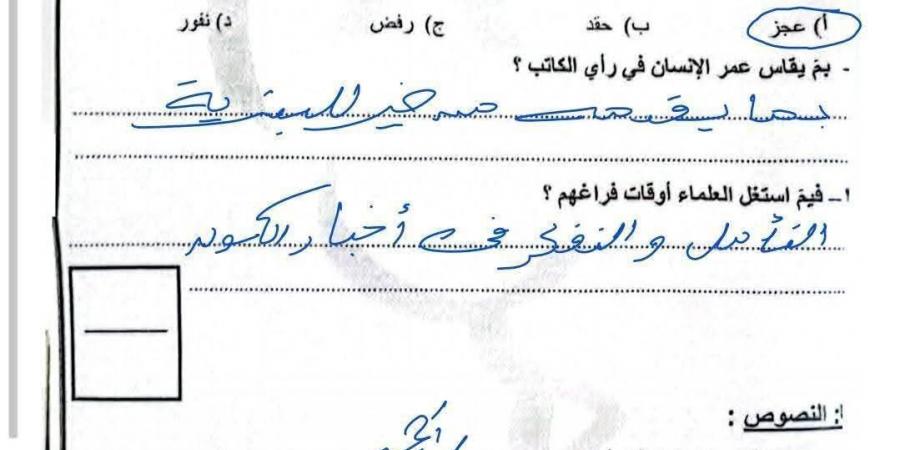 أ) عجز ب) حقد ج) رفض د) نفور
- بمَ يقاس عمر الإنسان في رأي الكاتب ؟
بما يقدمه من خير للبشرية
١ـ فيمَ استغل العلماء أوقات فراغهم ؟
التأمل والتفكر في أخبار الكون
: النصوص :